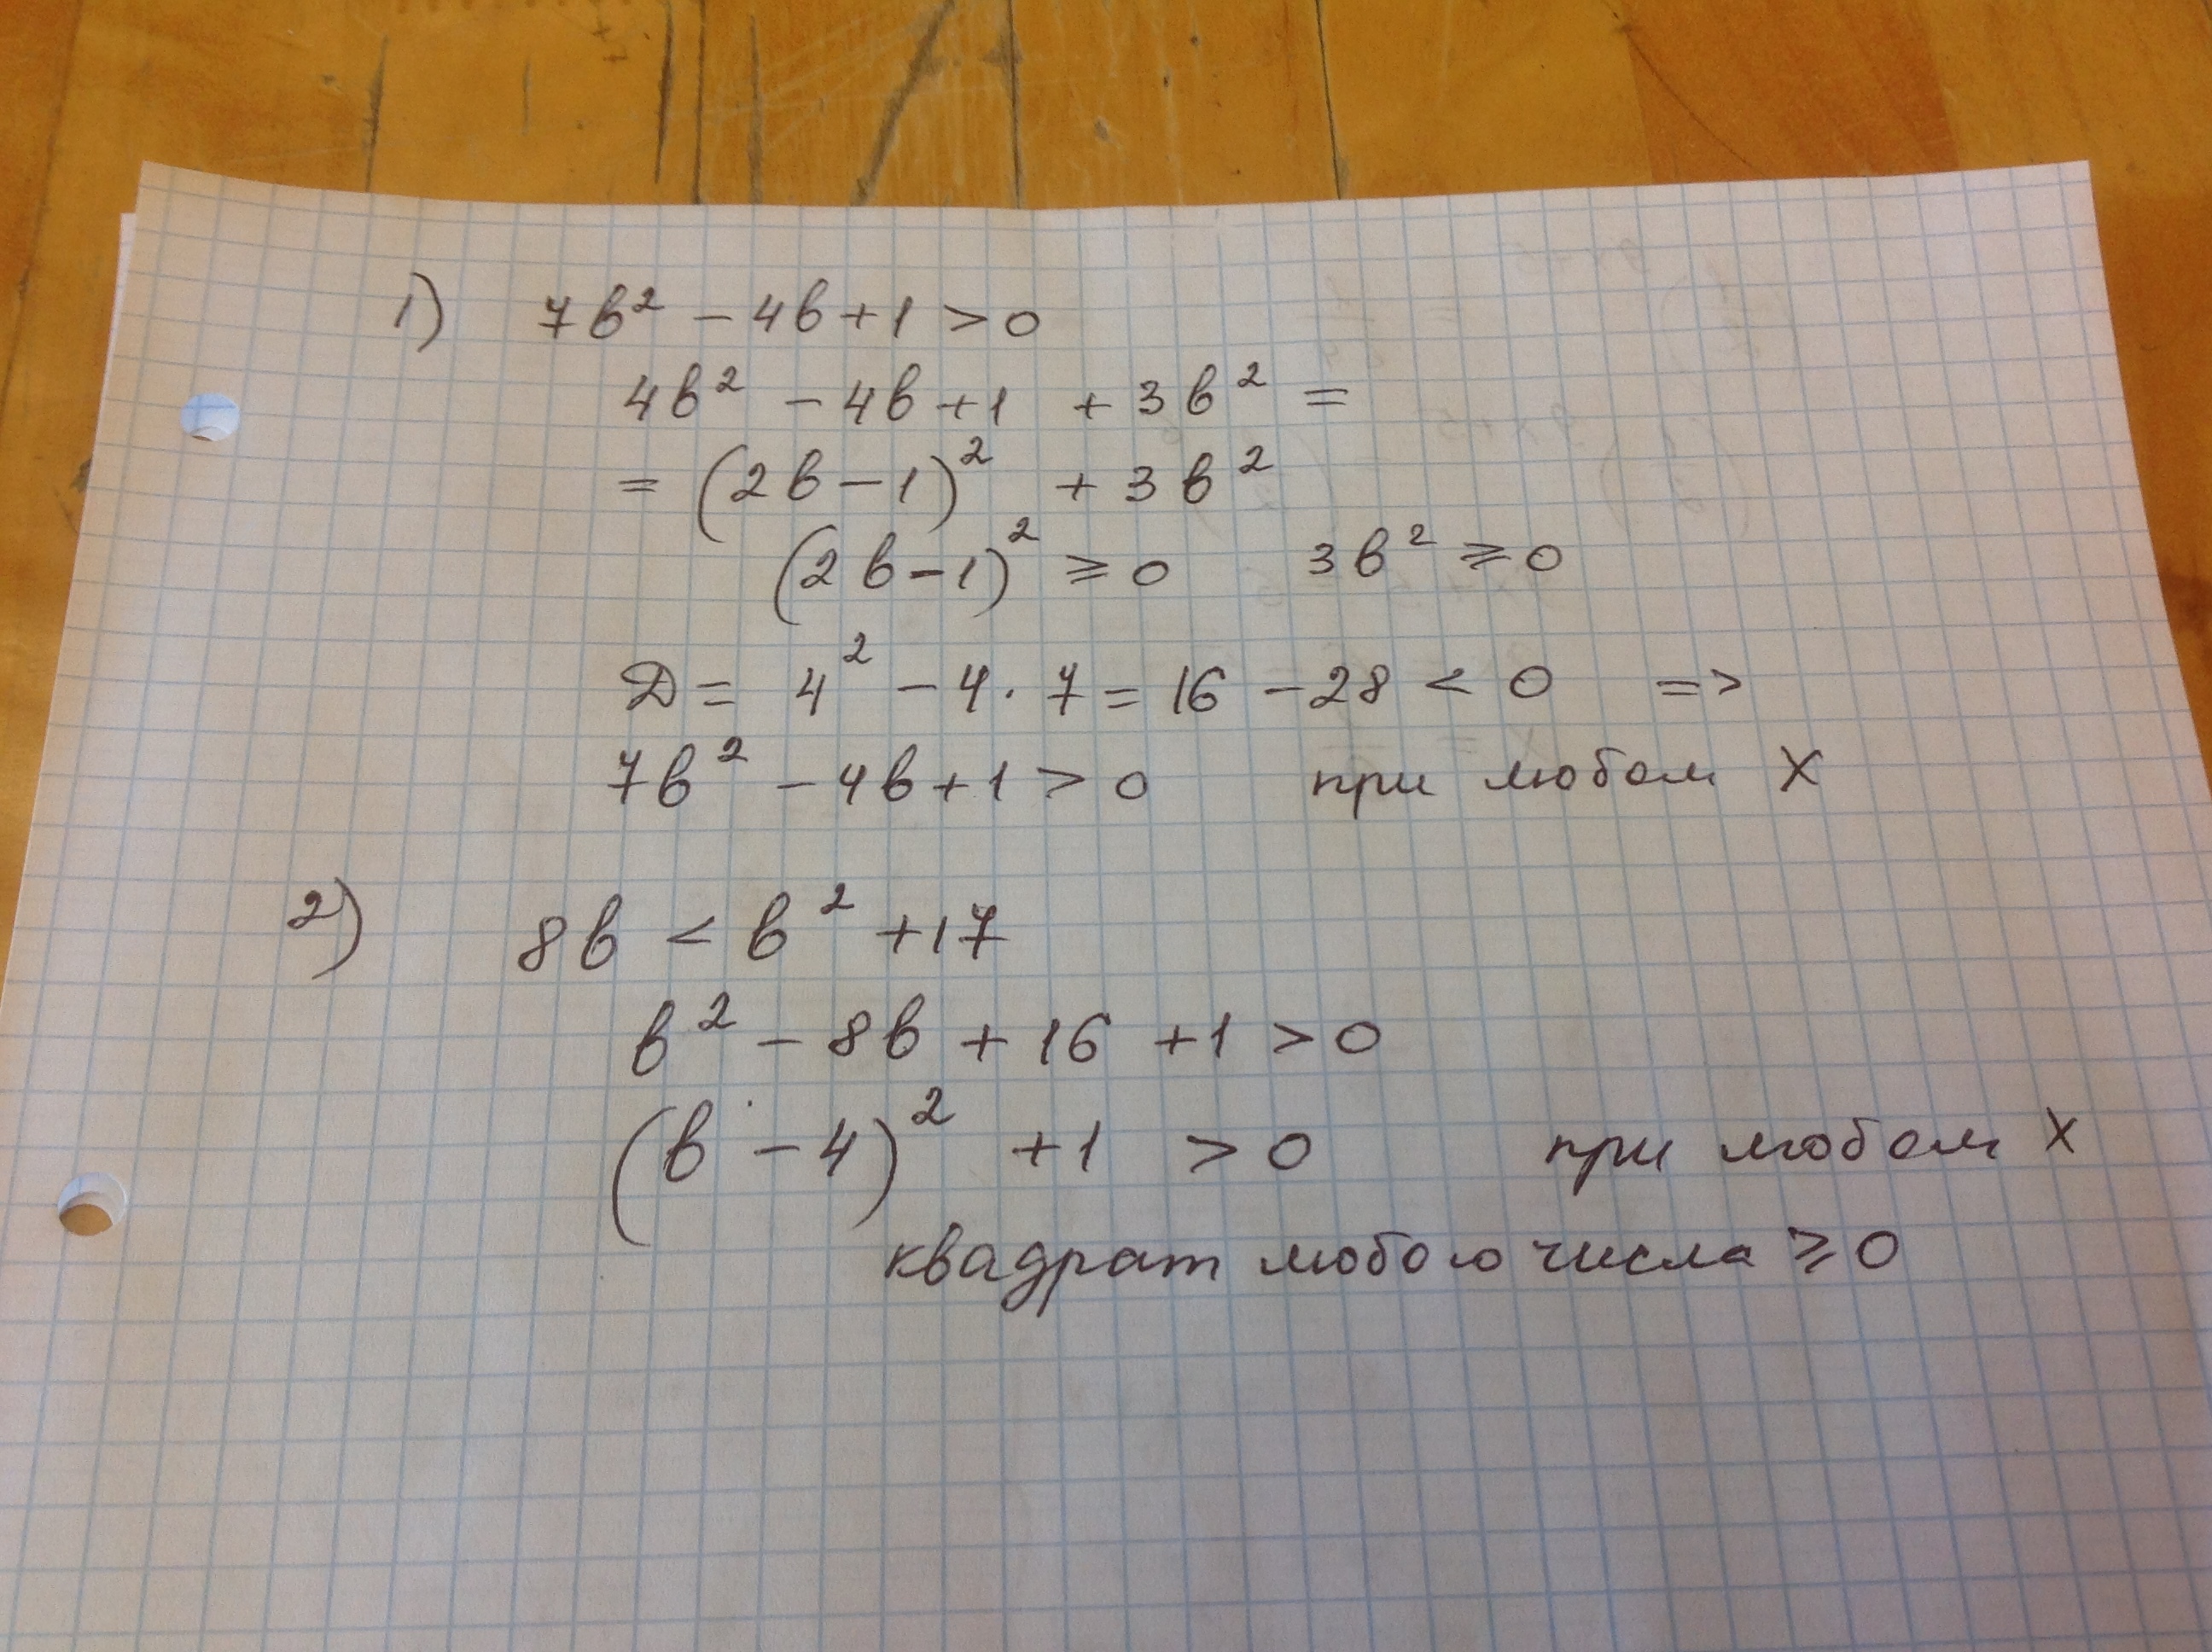 1) 7b² - 4b + 1 > 0
4b² - 4b + 1 + 3b² =
= (2b - 1)² + 3b²
(2b - 1)² ≥ 0 3b² ≥ 0
D = 4² - 4 · 7 = 16 - 28 < 0 =>
7b² - 4b + 1 > 0 при любом x
2) 8b < b² + 17
b² - 8b + 16 + 1 > 0
(b - 4)² + 1 > 0 при любом x
квадрат любого числа ≥ 0